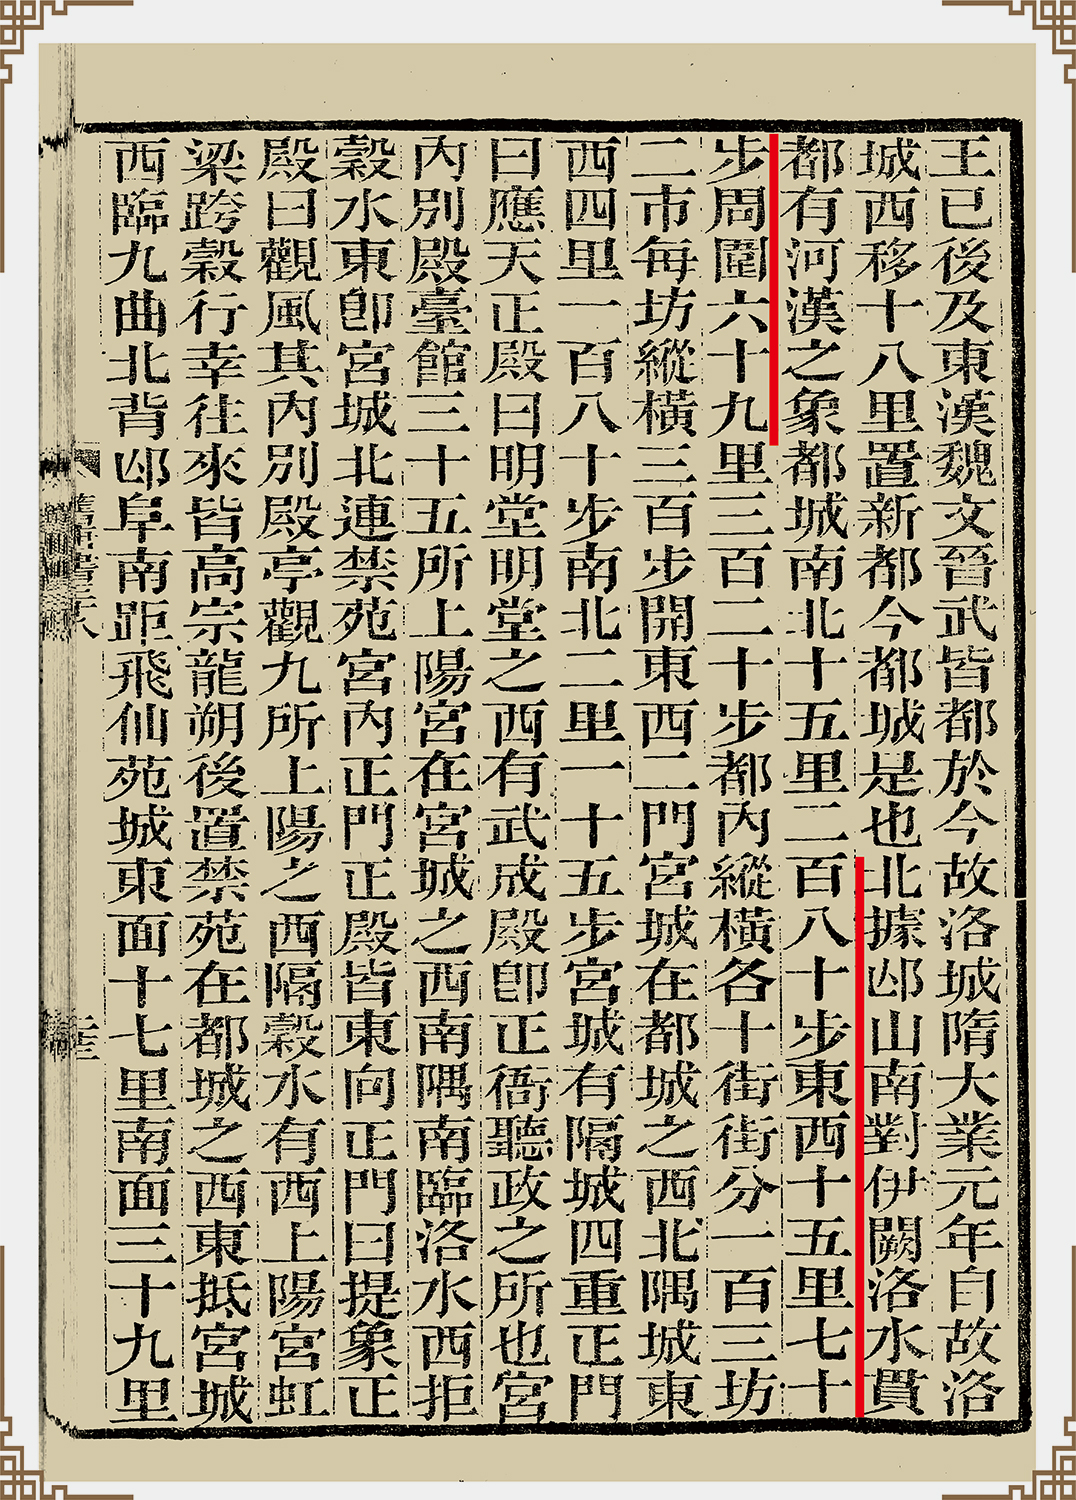 王已後及東漢魏文晉武皆都於今故洛城隋大業元年自故洛
城西移十八里置新都今都城是也北據邙山南對伊闕洛水貫
都有河漢之象都城南北十五里二百八十步東西十五里七十
步周圍六十九里三百二十步都內縱橫各十街街分一百三坊
二市每坊縱橫三百步開東西二門宮城在都城之西北隅城東
西四里一百八十步南北二里一十五步宮城有隔城四重正門
曰應天正殿曰明堂明堂之西有武成殿卽正衙聽政之所也宮
內別殿臺館三十五所上陽宮在宮城之西南隅南臨洛水西拒
穀水東卽宮城北連禁苑宮內正門正殿皆東向正門曰提象正
殿曰觀風其內別殿亭觀九所上陽之西隔穀水有西上陽宮虹
梁跨穀行幸往來皆高宗龍朔後置禁苑在都城之西東抵宮城
西臨九曲北背邙阜南距飛仙苑城東面十七里南面三十九里